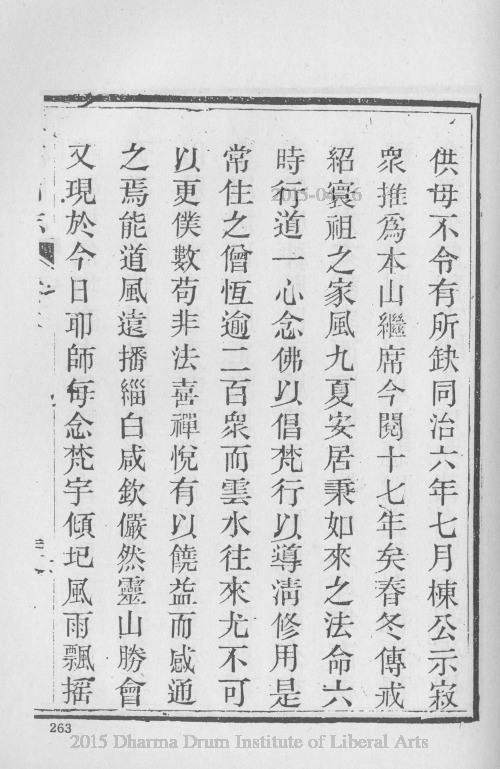 供母不令有所缺同治六年七月棟公示寂
衆推爲本山繼席今閱十七年矣春冬傳戒
紹寰祖之家風九夏安居秉如來之法命六
時行道一心念佛以倡梵行以導淸修用是
常住之僧恆逾二百衆而雲水往來尤不可
以更僕數苟非法喜禪悅有以饒益而感通
之焉能道風遠播緇白咸欽儼然靈山勝會
又現於今日耶師每念梵宇傾圮風雨飄搖
263
2015 Dharma Drum Institute of Liberal Arts